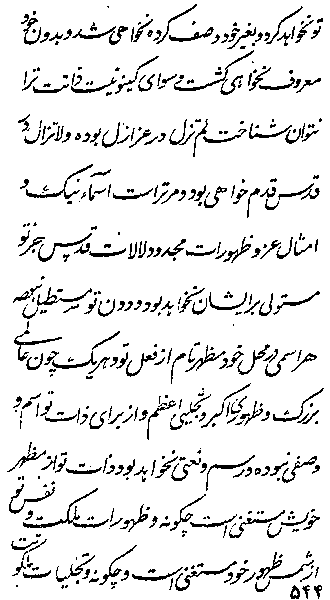 تو نخواهد کرد و بغیر خود وصف کرده نخواهی شد و بدون خود
معروف نخواهی گشت و سوای کینونیت ذاتت ترا
نتوان شناخت لم تزل در عز ازل بوده و لاتزال در
قدس قدم خواهی بود و مر تراست اسماء نیک و
امثال عز و ظهورات مجد و دلالات قدس جز تو
مستولی بر ایشان نخواهد بود و دون تو مستطیل نه
هر اسمی در محل خود مظهر تام از فعل تو و هر یک چون عالمی
بزرگ و ظهوری اکبر و تجلیی اعظم و از برای ذات تو اسم و
وصفی نبوده و رسم و نعتی نخواهد بود ذات تو از مظهر نفس تو
خویش مستغنی است چگونه و ظهورات ملکت و
از شمس ظهور خود مستغنی است و چگونه و تجلیات ملکوتت
۵۴۴